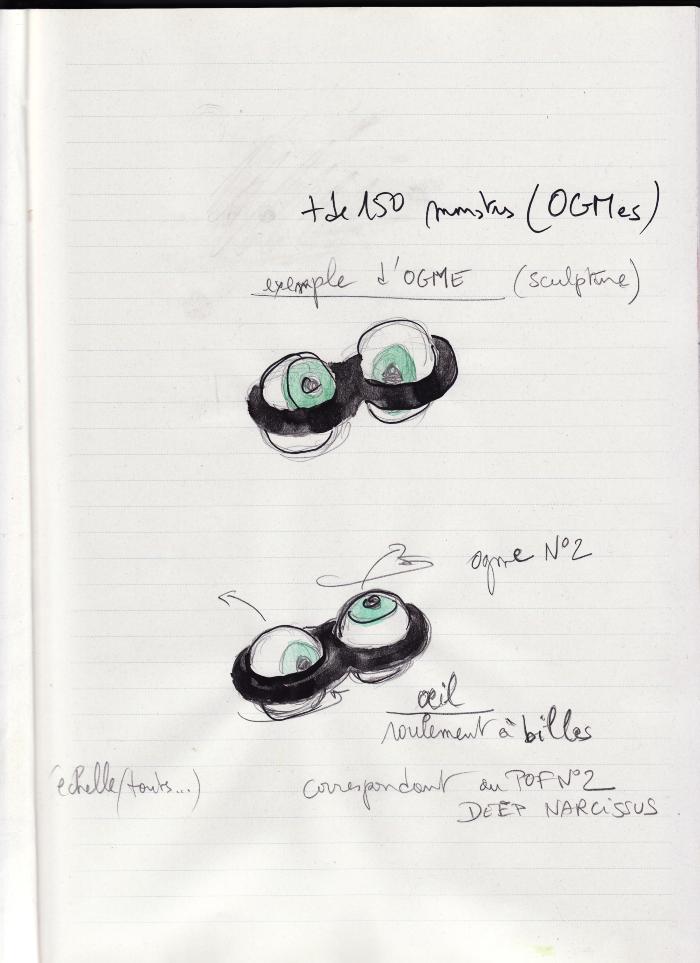 + de 150 monstres (OGMes)
exemple d'OGME (sculpture)
ogme N°2
œil
roulement à billes
échelle (touts...)
correspondant au POF N°2
DEEP NARCISSUS